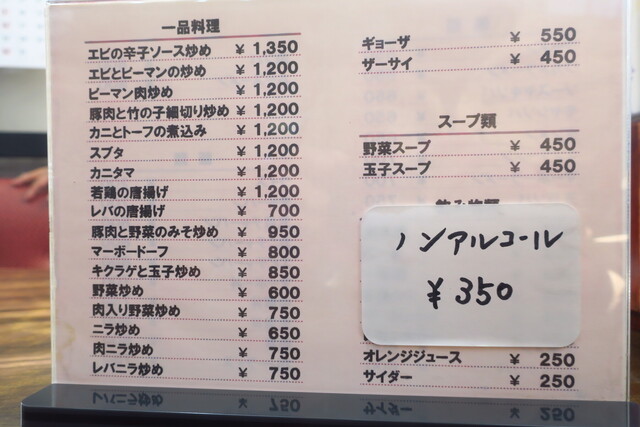 一品料理
エビの辛子ソース炒め ¥ 1,350
エビとピーマンの炒め ¥ 1,200
ピーマン肉炒め ¥ 1,200
豚肉と竹の子細切り炒め ¥ 1,200
カニとトーフの煮込み ¥ 1,200
スブタ ¥ 1,200
カニタマ ¥ 1,200
若鶏の唐揚げ ¥ 1,200
レバの唐揚げ ¥ 700
豚肉と野菜のみそ炒め ¥ 950
マーボードーフ ¥ 800
キクラゲと玉子炒め ¥ 850
野菜炒め ¥ 600
肉入り野菜炒め ¥ 750
ニラ炒め ¥ 650
肉ニラ炒め ¥ 750
レバニラ炒め ¥ 750
ギョーザ ¥ 550
ザーサイ ¥ 450
スープ類
野菜スープ ¥ 450
玉子スープ ¥ 450
ノンアルコール
¥350
オレンジジュース ¥ 250
サイダー ¥ 250